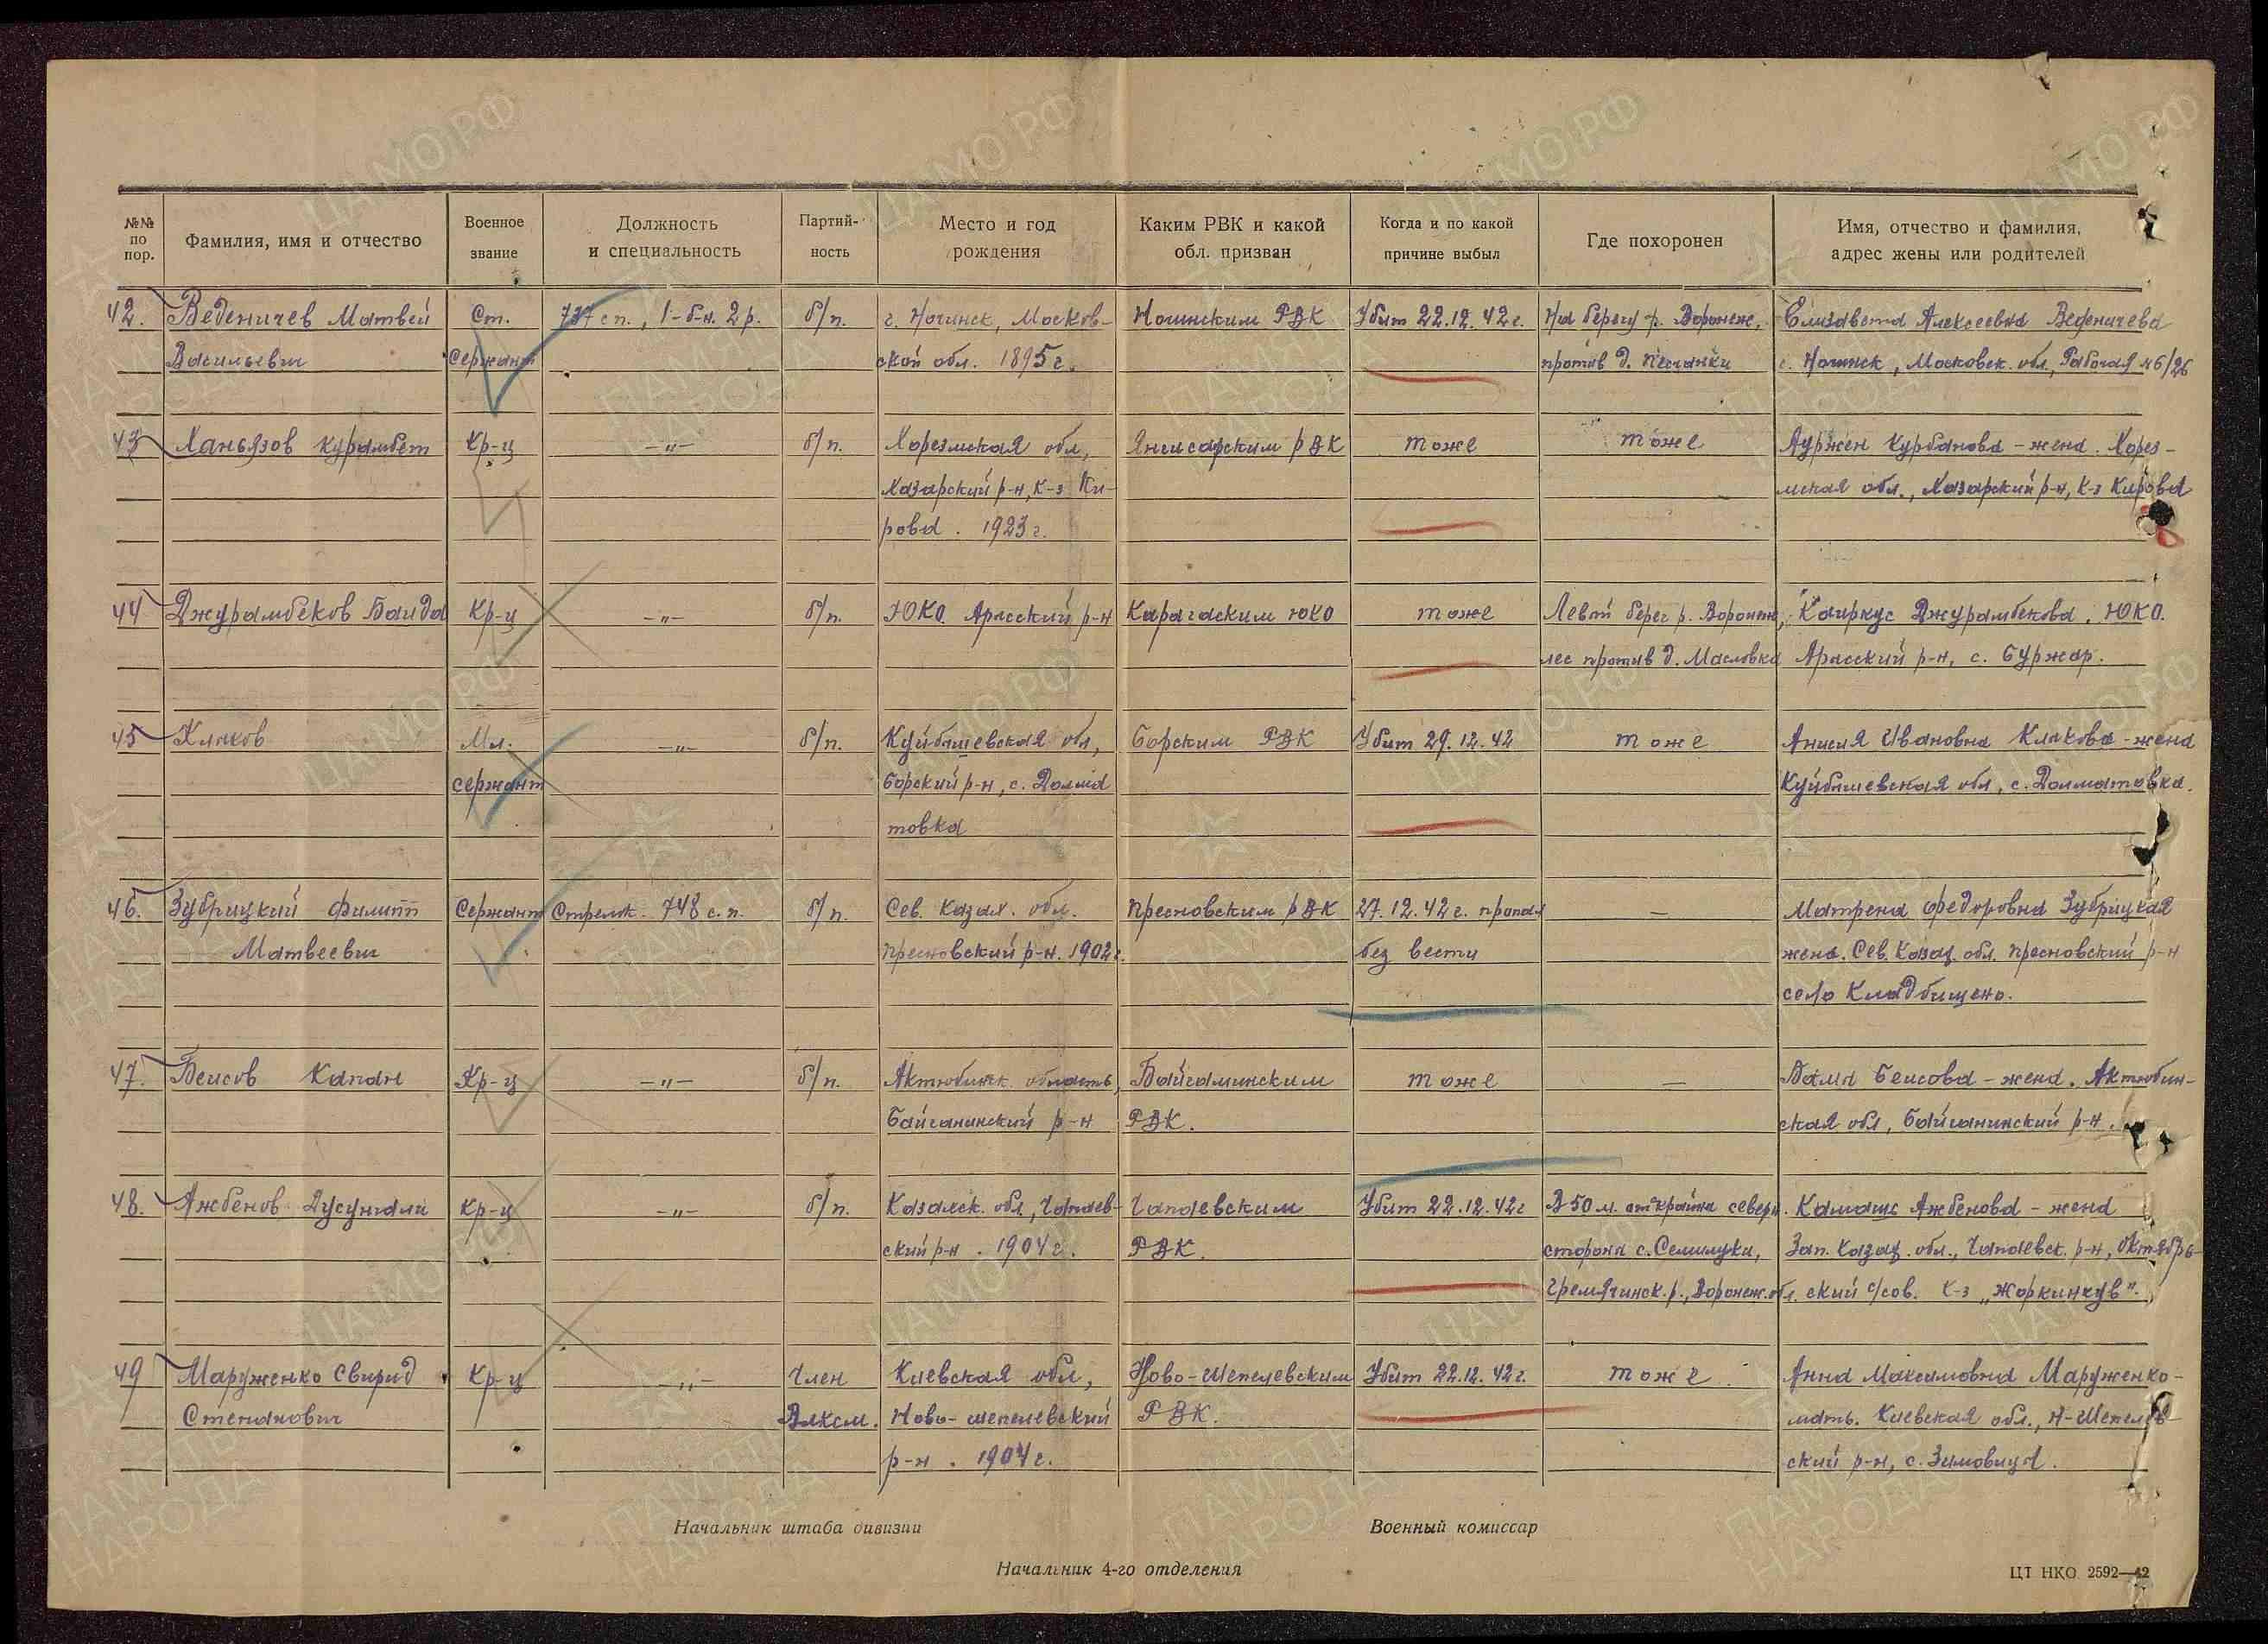 №№ по пор.
Фамилия, имя и отчество
Военное звание
Должность и специальность
Партийность
Место и год рождения
Каким РВК и какой обл. призван
Когда и по какой причине выбыл
Где похоронен
Имя, отчество и фамилия, адрес жены или родителей
42. Веденичев Матвей Ст. 737 сп., 1-б-н. 2 р. б/п. г. Ногинск, Москов- Ногинским РВК Убит 22.12.42г. На берегу р. Воронеж, Елизавета Алексеевна Веденичева
Васильевич Сержант ской обл. 1895г. против д. Песчанки г. Ногинск, Московск. обл., Рабочая 26
43 Ханьязов Курамбет Кр-ц —„— б/п. Хорезмская обл, РВК тоже тоже Курбанова - жена. Хорез-
Хазарский р-н, к-з Ки- мская обл., Хазарский р-н, к-з Кирова
рова. 1923г.
44 Джурамбеков Баида Кр-ц —„— б/п. ЮКО Арысский р-н Карагаским ЮКО тоже Левый берег р. Воронеж, Каиркус Джурамбекова. ЮКО.
лес против д. Масловка Арысский р-н, с. Буржар.
45 Кляков Мл. —„— б/п. Куйбышевская обл, Борским РВК Убит 29.12.42 тоже Анисия Ивановна Клякова - жена
сержант Борский р-н, с. Долма Куйбышевская обл, с. Долматовка.
товка
46. Зубрицкий Филипп Сержант Стрелок. 748 с.п. б/п. Сев. Казах. обл. Пресновским РВК 27.12.42г. пропал — Матрена Федоровна Зубрицкая
Матвеевич Пресновский р-н. 1902г. без вести жена. Сев. Казах. обл. Пресновский р-н
село Кладбищено.
47. Беисов Капан Кр-ц —„— б/п. Актюбинск. область, Байганинским тоже — Беисова - жена. Актюбин-
Байганинский р-н РВК. ская обл, Байганинский р-н.
48. Ажбенов Дусунгали Кр-ц —„— б/п. Казахск. обл., Чапаев- Чапаевским Убит 22.12.42г В 50 м. от крайня северн. Камаш Ажбенова - жена
ский р-н. 1904г. РВК. сторона с. Семилуки, Зап. Казах. обл., Чапаевск. р-н, Октябрь-
Гремяченск. р., Воронеж. обл. ский с/сов. к-з „Жоркинкув".
49 Маруженко Свирид Кр-ц —„— Член Киевская обл, Ново-Шепелевским Убит 22.12.42г. тоже. Анна Максимовна Маруженко-
Степанович Влксм. Ново-шепелевский РВК. мать. Киевская обл., Н-Шепелев-
р-н. 1904г. ский р-н, с. Зимовище.
Начальник штаба дивизии
Военный комиссар
Начальник 4-го отделения
ЦТ НКО 2592—42
ПАМЯТЬ НАРОДА
ЦАМО.РФ